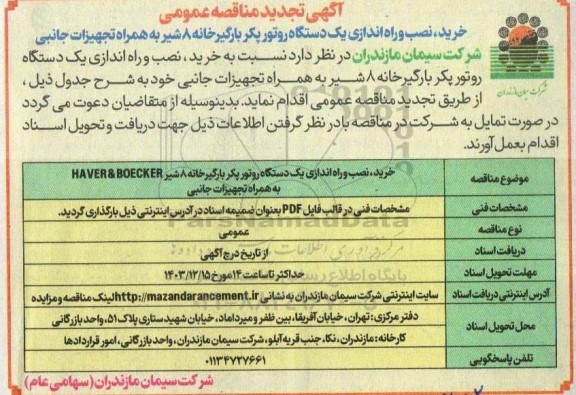 آگهی تجدید مناقصه عمومی
خرید، نصب و راه اندازی یک دستگاه روتور پکر بارگیرخانه ۸ شیر به همراه تجهیزات جانبی
شرکت سیمان مازندران در نظر دارد نسبت به خرید، نصب و راه اندازی یک دستگاه
روتور پکر بارگیرخانه ۸ شیر به همراه تجهیزات جانبی خود به شرح جدول ذیل،
از طریق تجدید مناقصه عمومی اقدام نماید. بدینوسیله از متقاضیان دعوت می گردد
در صورت تمایل به شرکت در مناقصه با در نظر گرفتن اطلاعات ذیل جهت دریافت و تحویل اسناد
اقدام بعمل آورند.
شرکت سیمان مازندران
موضوع مناقصه
خرید، نصب و راه اندازی یک دستگاه روتور پکر بارگیرخانه ۸ شیر HAVER & BOECKER
به همراه تجهیزات جانبی
مشخصات فنی
مشخصات فنی در قالب فایل PDF بعنوان ضمیمه اسناد در آدرس اینترنتی ذیل بارگذاری گردید.
نوع مناقصه
عمومی
دریافت اسناد
از تاریخ درج آگهی
مهلت تحویل اسناد
حداکثر تا ساعت ۱۴ مورخ ۱۴۰۳/۱۲/۱۵
آدرس اینترنتی دریافت اسناد
سایت اینترنتی شرکت سیمان مازندران به نشانی http://mazandarancement.ir لینک مناقصه و مزایده
محل تحویل اسناد
دفتر مرکزی: تهران، خیابان آفریقا، بین ظفر و میرداماد، خیابان شهید ستاری پلاک ۵۱، واحد بازرگانی
کارخانه: مازندران، نکا، جنب قریه آبلو، شرکت سیمان مازندران، واحد بازرگانی، امور قراردادها
تلفن پاسخگویی
۰۱۱۳۴۷۲۷۶۶۱
شرکت سیمان مازندران (سهامی عام)